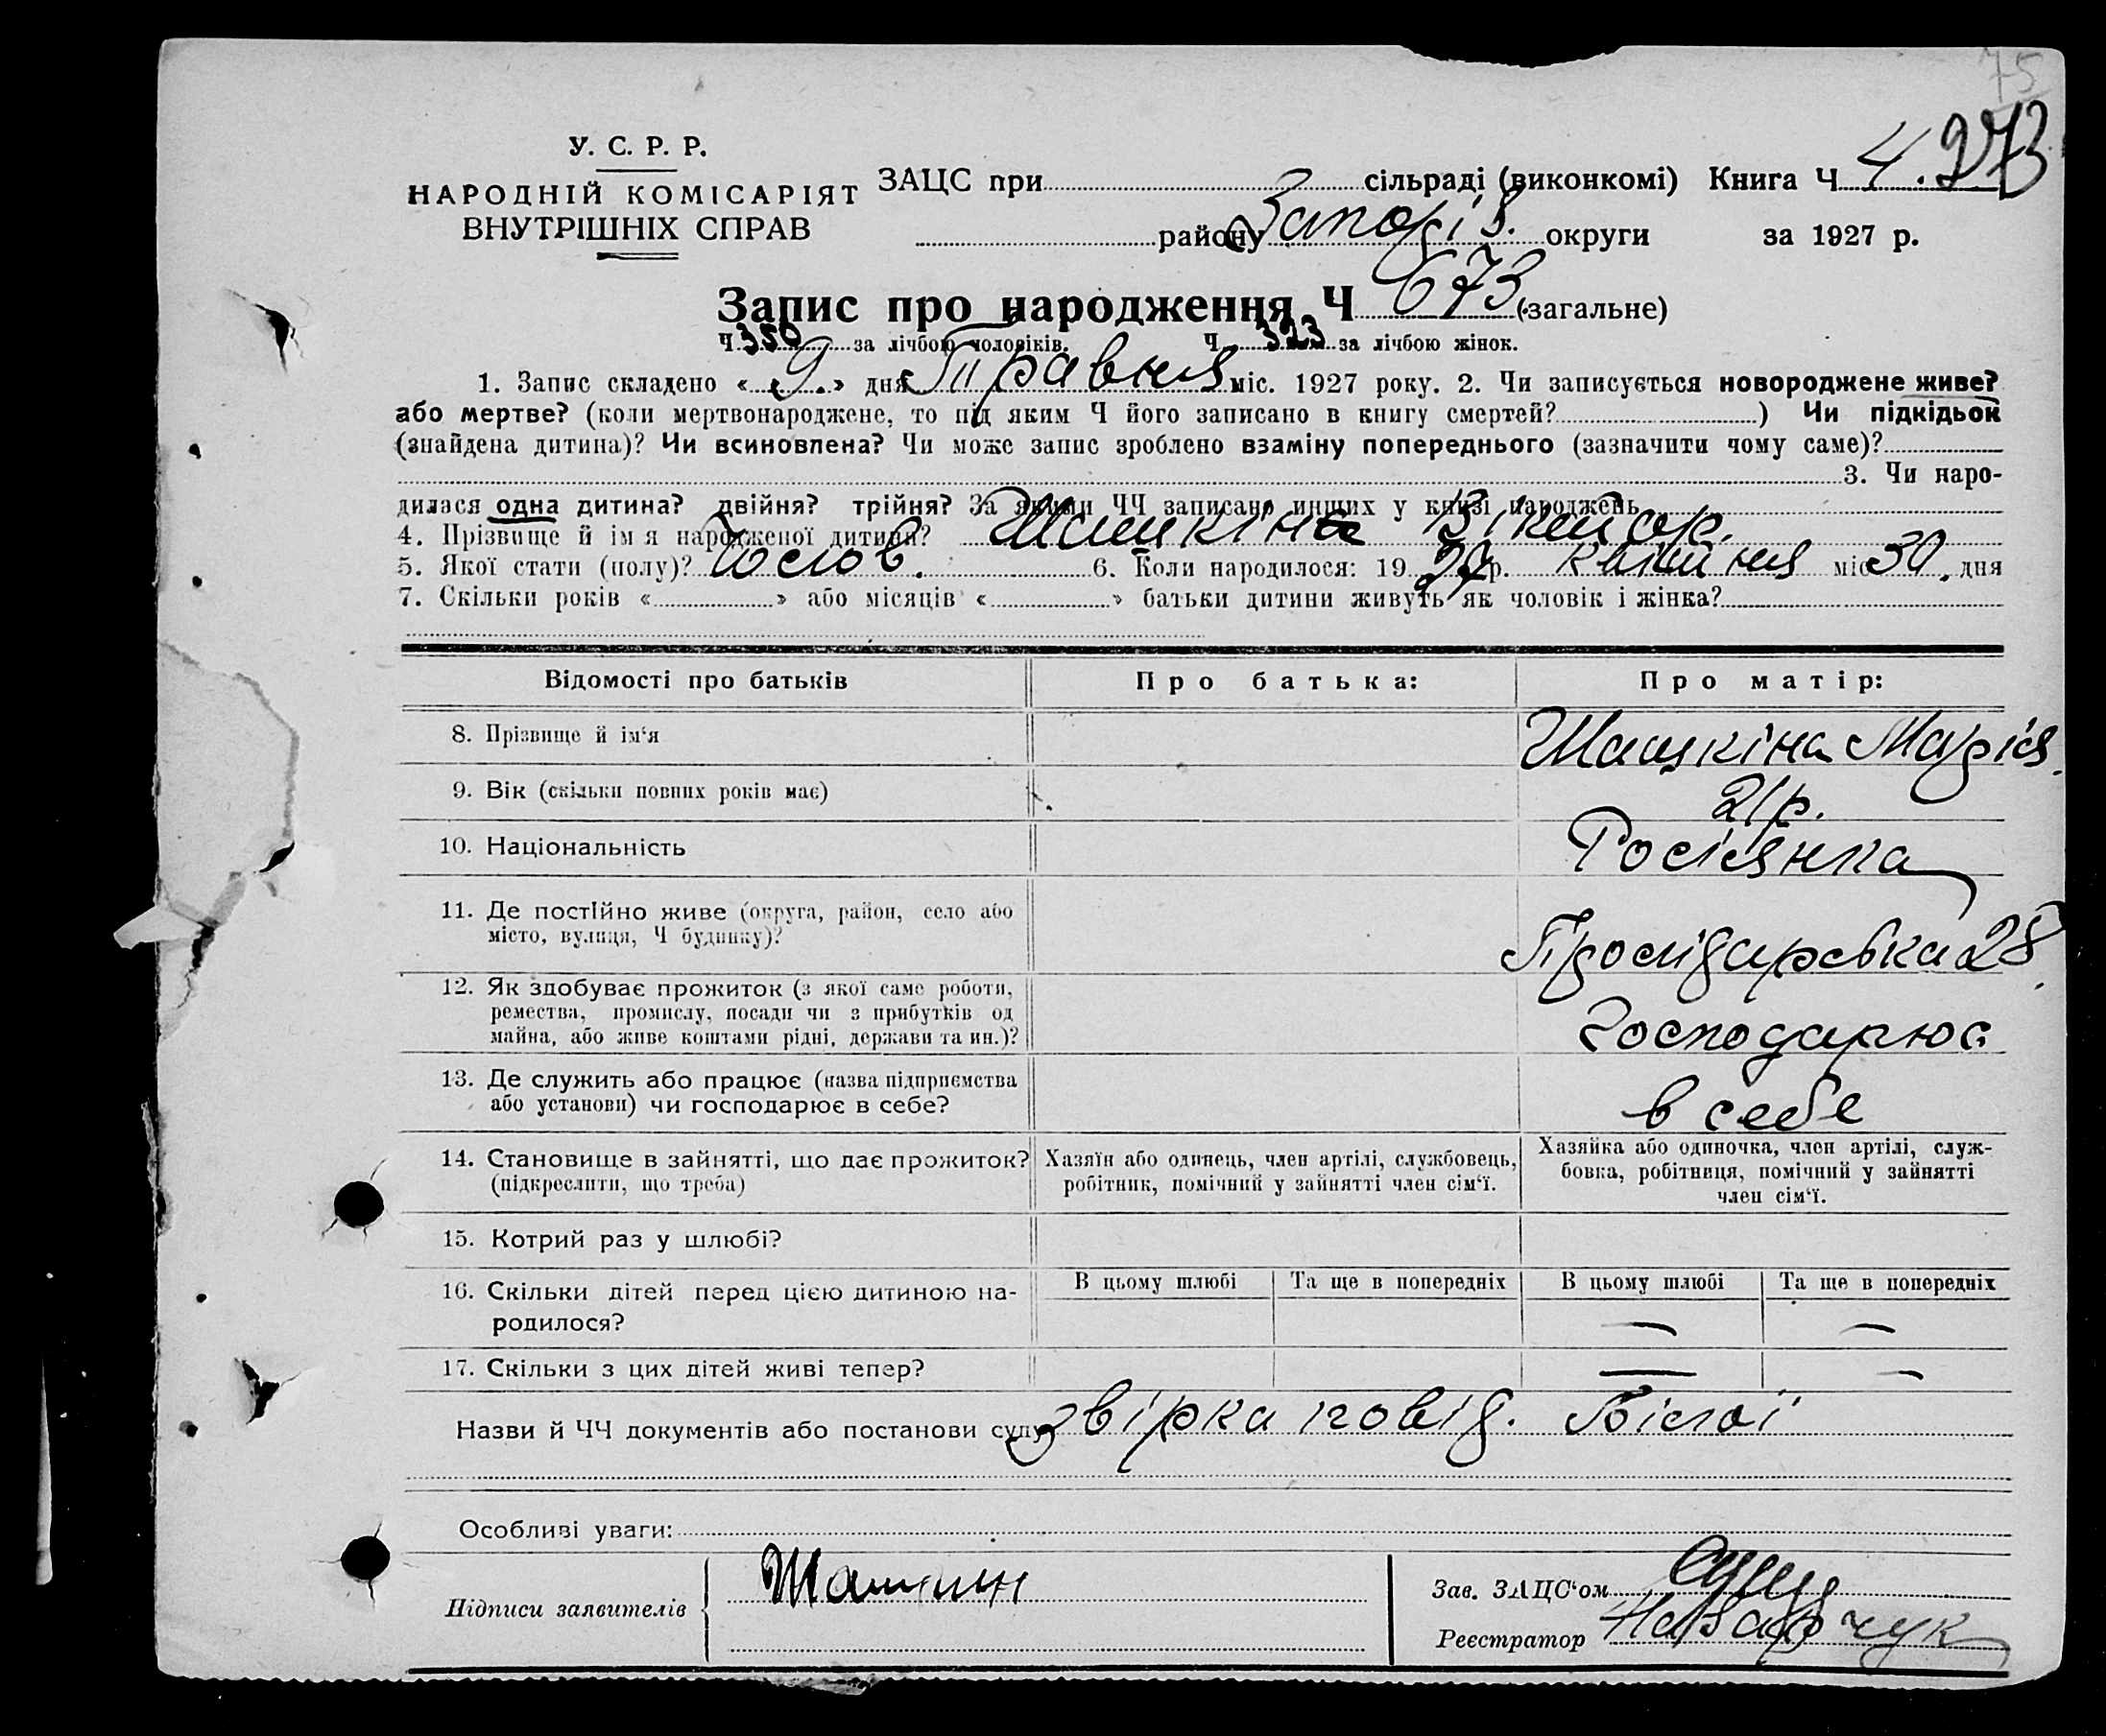 75
У. С. Р. Р.
НАРОДНІЙ КОМІСАРІЯТ
ВНУТРІШНІХ СПРАВ
ЗАЦС при сільраді (виконкомі) Книга Ч 4. 273
району Запоріз. округи за 1927 р.
Запис про народження Ч 673 (загальне)
Ч 350 за лічбою чоловіків. Ч 323 за лічбою жінок.
1. Запис складено « 9 » дня Травня міс. 1927 року. 2. Чи записується новороджене живе?
або мертве? (коли мертвонароджене, то під яким Ч його записано в книгу смертей? ) Чи підкідьок
(знайдена дитина)? Чи всиновлена? Чи може запис зроблено взаміну попереднього (зазначити чому саме)?
3. Чи наро-
дилася одна дитина? двійня? трійня? За якими ЧЧ записано инших у книзі народжень
4. Прізвище й ім я народженої дитини? Шашкіна Віктор.
5. Якої стати (полу)? Чолов. 6. Коли народилося: 19 27 р. квітня міс 30. дня
7. Скільки років « » або місяців « » батьки дитини живуть як чоловік і жінка?
Відомості про батьків Про батька: Про матір:
8. Прізвище й ім'я Шашкіна Марія.
9. Вік (скільки повних років має) 21 р.
10. Національність Росіянка
11. Де постійно живе (округа, район, село або
місто, вулиця, Ч будинку)? 28
12. Як здобуває прожиток (з якої саме роботи,
ремества, промислу, посади чи з прибутків од
майна, або живе коштами рідні, держави та ин.)? Господарює
13. Де служить або працює (назва підприємства
або установи) чи господарює в себе? в себе
14. Становище в зайнятті, що дає прожиток?
(підкреслити, що треба)
Хазяїн або одинець, член артілі, службовець,
робітник, помічний у зайнятті член сім'ї.
Хазяйка або одиночка, член артілі, служ-
бовка, робітниця, помічний у зайнятті
член сім'ї.
15. Котрий раз у шлюбі?
16. Скільки дітей перед цією дитиною на-
родилося?
В цьому шлюбі Та ще в попередніх В цьому шлюбі Та ще в попередніх
— —
17. Скільки з цих дітей живі тепер? — —
Назви й ЧЧ документів або постанови суду звірка повід. Білої
Особливі уваги:
Підписи заявителів Шашкин
Зав. ЗАЦС'ом
Реєстратор Назарчук